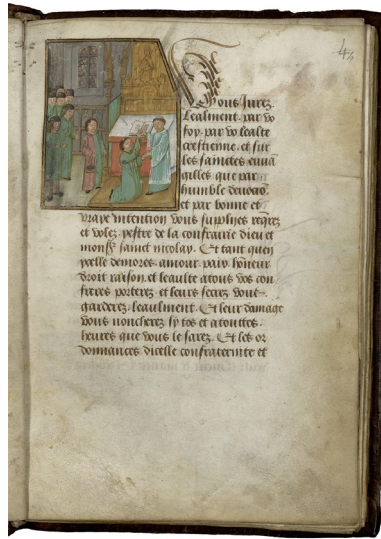 43
Vous Jurez
Lealment. par vo
foy. par vo lealte
crestienne. et sur
les sainctes euuā
gilles que par
humble deuocō
et par bonne et
vraye intention vous supplyes reqrez
et volez. pestre de la confrarie dieu et
monsr sainct nicolay. Et tant quen
ycelle demores. amour. paix. hōneur
droit raison. et leaulte a tous vos con
freres porterez et leurs secrez vous
garderez. leaulment. Et leur damage
vous noncherez. sy tos et a touttes.
heures que vous le sarez. Et les or
donnances dicelle confraternite et